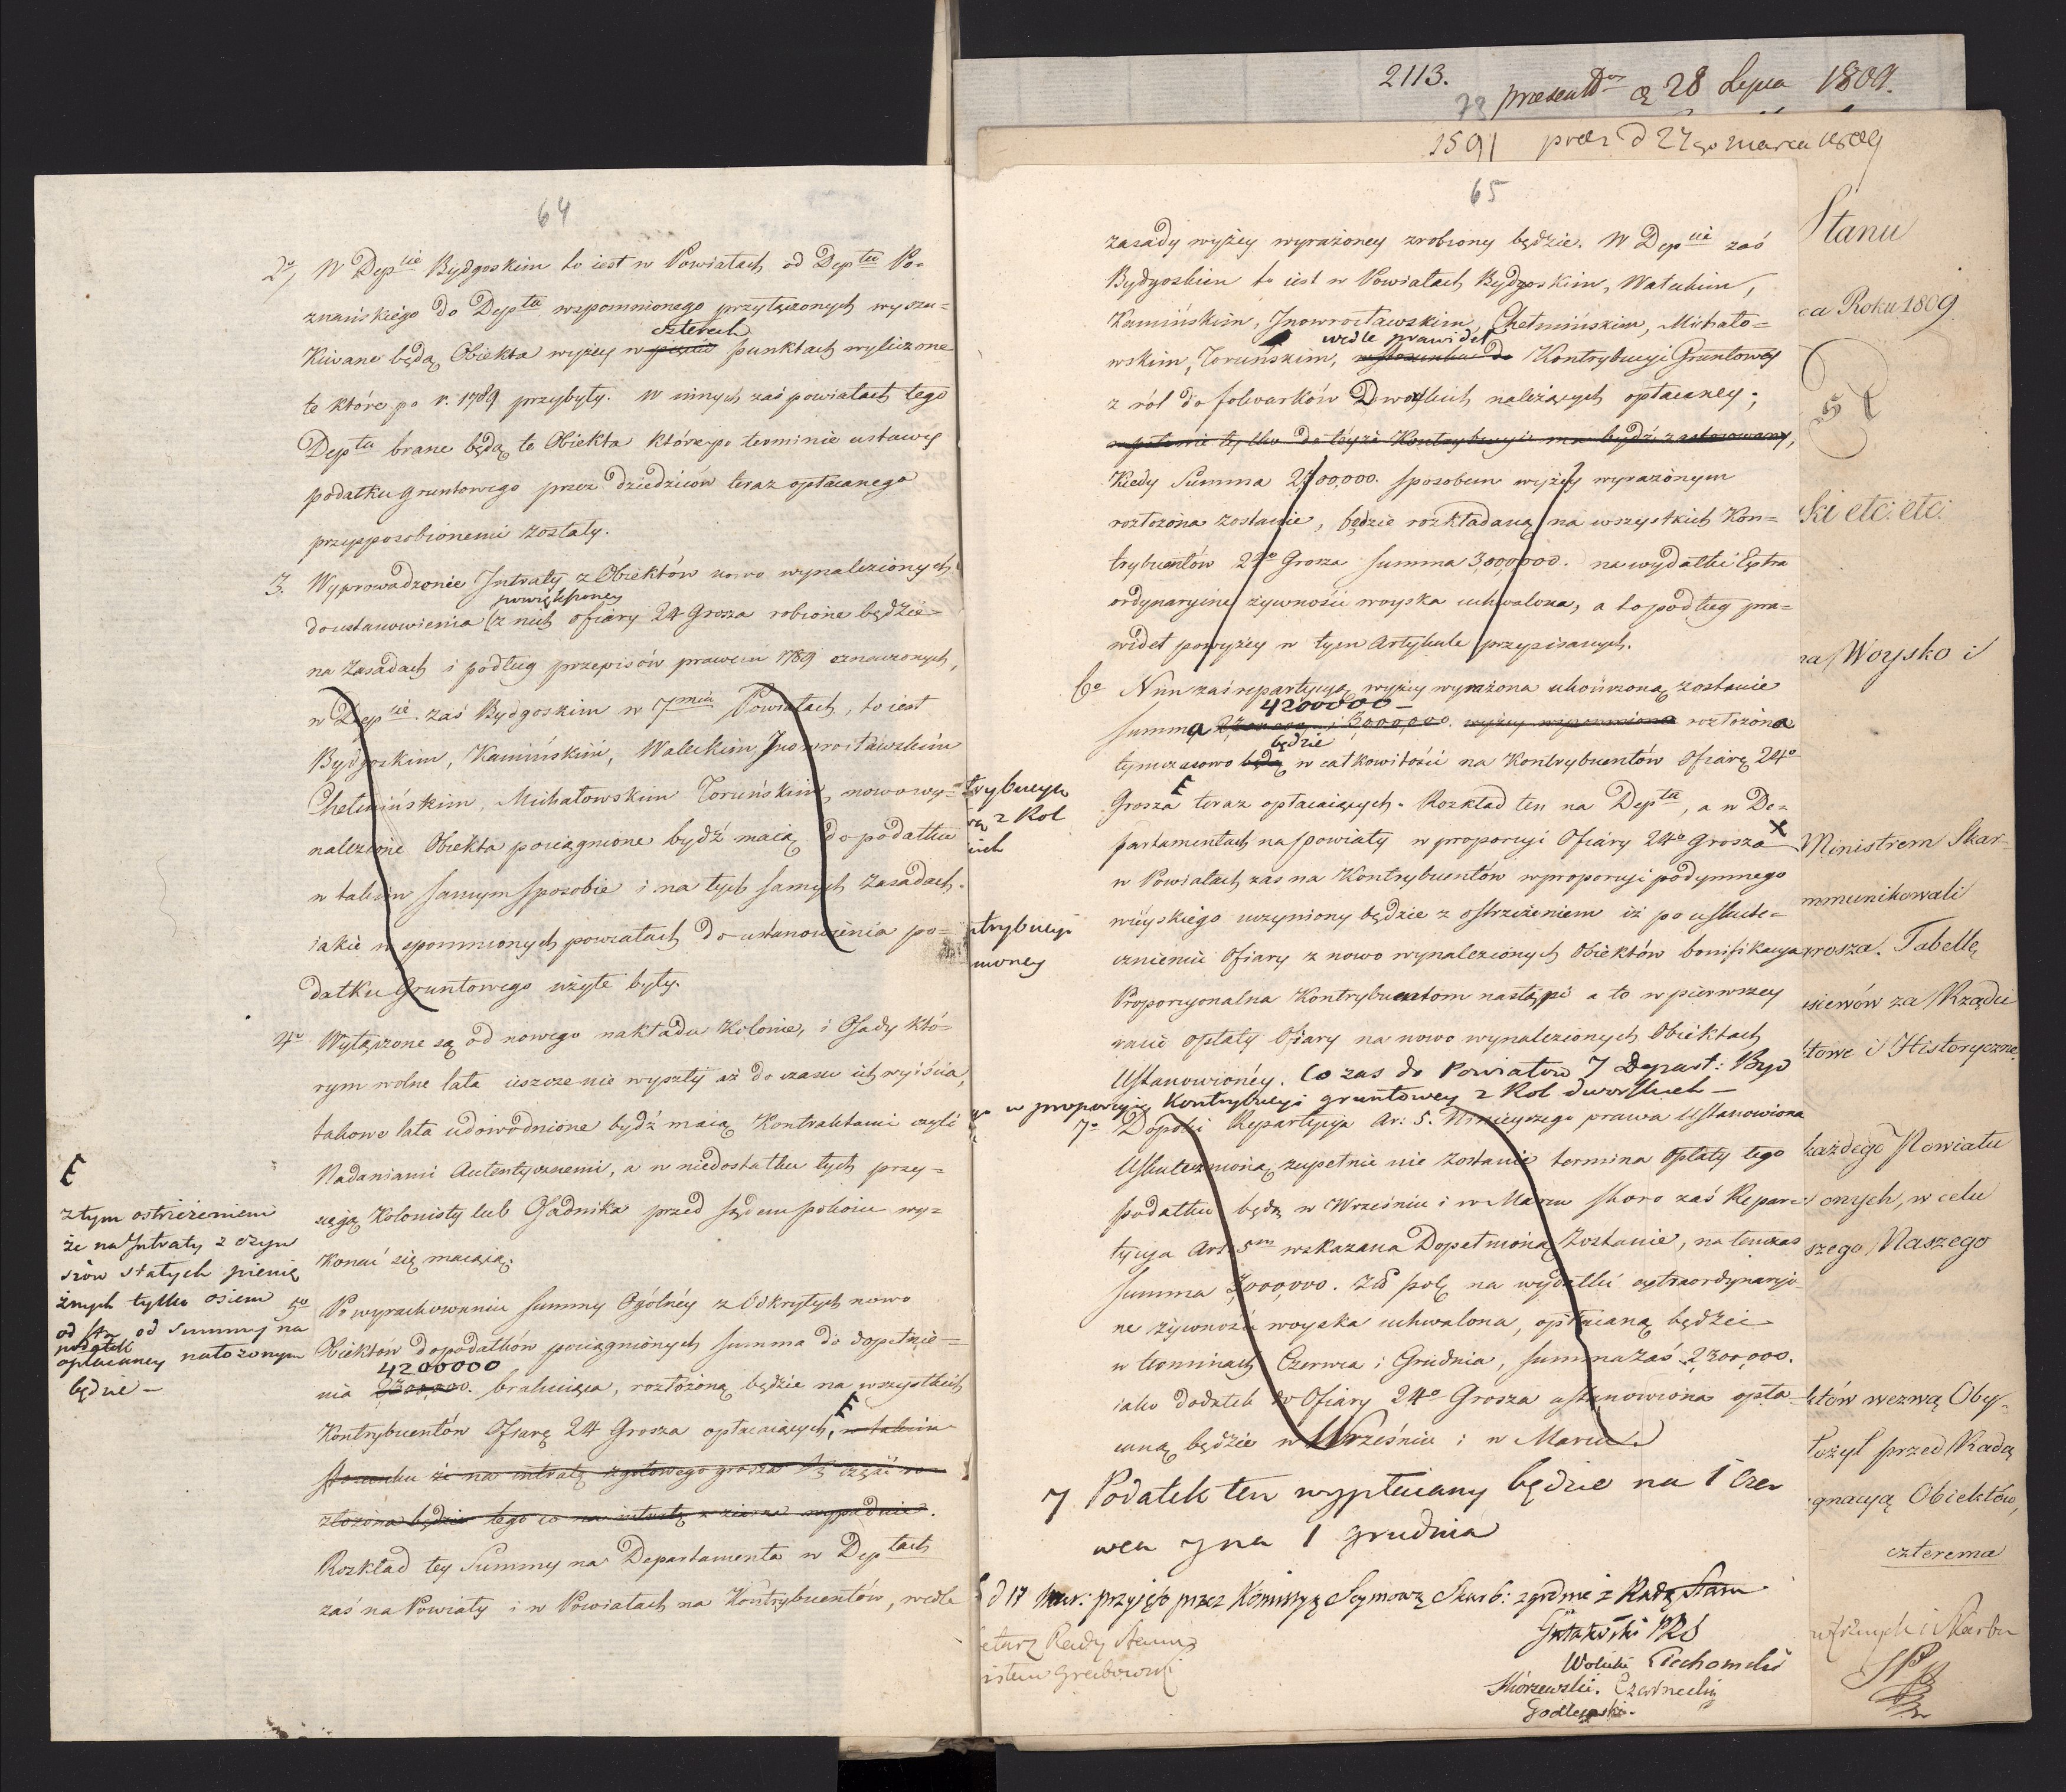 64
2o/ W Depcie Bydgoskim to iest w Powiatach od Deptu Po-
znańskiego do Depta wspomnionego przyłączonych wyszu-
czterech
kiwane będą Obiekta wyżey w pięciu punktach wyliczone
te które po r. 1789 przybyły. W innych zaś powiatach tego
Depta brane będą te Obiekta które po terminie ustawy
podatku gruntowego przez dziedziców teraz opłacanego
przysposobionemi zostały.
3. Wyprowadzenie Intraty z Obiektów nowo wynalezionych
powiększoney
do ustanowienia z nich ofiary 24 Grosza robione będzie
na Zasadach i podług przepisów prawem 1789 oznaczonych,
w Depcie zaś Bydgoskim w 7miu Powiatach, to iest
Bydgoskim, Kamińskim, Waleckim, Inowrocławskim
Chełmińskim, Michałowskim Toruńskim, nowo wy-
nalezione Obiekta pociągnione bydź maią do podatku
w takim samym sposobie i na tych samych Zasadach.
iakie w spomnionych powiatach do ustanowienia po-
datku Gruntowego użyte były.
4o Wyłączone są od nowego nakładu Kolonie, i Osady któ-
rym wolne lata ieszcze nie wyszły aż do czasu ich wyiścia,
takowe lata udowodnione bydź maią Kontraktami czyli
Nadaniami Autentycznemi, a w niedostatku tych przy-
sięgą Kolonisty lub Osadnika przed sądem pokoiu wy-
konać się maiącą.
z tym ostrzeżeniem
że na Intraty z czyn
szów stałych pienię
żnych tylko osiem
od sta od summy na
podatek
opłacaney nałożonym
będzie —
5o Po wyrachowaniu summy Ogólnéy z Odkrytych nowo
Obiektów do podatków pociągnionych summa do dopełnie-
4200000
nia 2300000. brakuiąca, rozłożoną będzie na wszystkich
Kontrybuentów Ofiarę 24 Grosza opłacaiących, w takim
stosunku że na intratę z gotowego grosza 1/3 część ro-
złożona będzie tego co na intratę z ziarna wypadnie.
Rozkład tey Summy na Departamenta w Deptach
zaś na Powiaty i w Powiatach na Kontrybuentów, wedle
2113.
78 praesentt d 28 Lipca 1809.
1591 praes d 27go marca 1809
65
zasady wyżey wyrażoney zrobiony będzie. W Depcie zaś
Bydgoskim to iest w Powiatach Bydgoskim, Wałeckim,
Kamińskim, Inowrocławskim, Chełmińskim, Michało-
wedle prawideł
wskim, Toruńskim, w stosunku do Kontrybucyi Gruntowey
z ról do folwarków Dworskich należących opłacaney;
Kiedy Summa 2300,000. sposobem wyżey wyrażonym
rozłożona zostanie, będzie rozkładaną na wszystkich Kon-
trybuentów 24o Grosza summa 3,000,000. na wydatki Extra
ordynaryine żywności woyska uchwalona, a to podług pra-
wideł powyżey w tym Artykule przypisanych.
6o Nim zaś repartycya wyżey wyrażona ukończoną zostanie
4200000 —
summa 2,300,000 i 3,000,000. wyżey wspomniona rozłożona
będzie
tymczasowo będą w całkowitości na Kontrybuentów Ofiarę 24o
Grosza teraz opłacaiących. Rozkład ten na Depta, a w De-
partamentach na powiaty w proporcyi Ofiary 24o grosza
w Powiatach zaś na Kontrybuentów w proporcyi podymnego
wieyskiego uczyniony będzie z ostrzeżeniem iż po uskute-
cznieniu Ofiary z nowo wynalezionych Obiektów bonifikacya
Proporcyonalna Kontrybuentom nastąpi a to w pierwszey
racie opłaty Ofiary na nowo wynalezionych Obiektach
Ustanowionéy. Co zas do Powiatow 7 Depart: Byd
w proporcyi Kontrybucyi gruntowey z Rol dworskich —
7o Dopóki Repartycya Ar: 5. Ninieyszego prawa Ustanowiona
Uskutecznioną zupełnie nie zostanie termina Opłaty tego
podatku będą w Wrześniu i w Marcu skoro zaś Repar-
tycya Art: 5m wskazana Dopełnioną Zostanie, na tenczas
summa 3,000,000. Zł pol na wydatki extraordynaryi-
ne żywności woyska uchwalona, opłacaną będzie
w terminach Czerwca i Grudnia, summa zaś 2,300,000.
iako dodatek do Ofiary 24o Grosza ustanowiona opła-
caną będzie w Wrześniu i w Marcu.
7 Podatek ten wypłacany będzie na 1 Czer
wca y na 1 grudnia
d 17 Mar: przyięto przez Kommissyą Seymową Skarb: zgodnie z Radą Stanu
Gutakowski PRS
Wolicki Ciechomski
Skórzewski. Czarnecki
Godlewski.
trybucyi
z Rol
ich
ntrybucyi
towney
Sekretarz Rady Stanu
Grabowski
Stanu
ca Roku 1809
ski etc. etc.
na Woysko i
Ministrem Skar-
mmunikowali
grosza. Tabellę
siewów za Rządu
ktowe i Historyczne
każdego Powiatu
onych, w celu
szego Naszego
któw wezwą Oby-
łożył przed Radą
gnacyą Obiektów,
czterema
i Skarbu